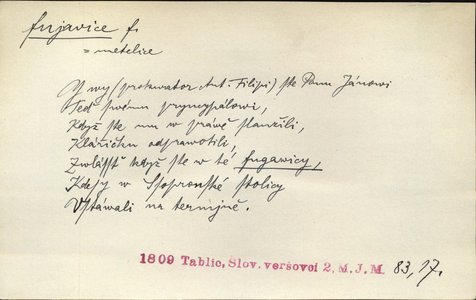 fujavice f.
= metelice
Y wy (prokurator Ant. Filipi) ste Panu Jánowi
Teď swému pryncypálowi,
Když ste mu w práwě slaužili,
Klářičku odprawotili,
Zwlásstť když ste w té fugawicy,
Kdesy w Ssopronské stolicy
Wstáwali na termijně.
1809 Tablic, Slov. veršovci 2, M. J. M. 83, 17.